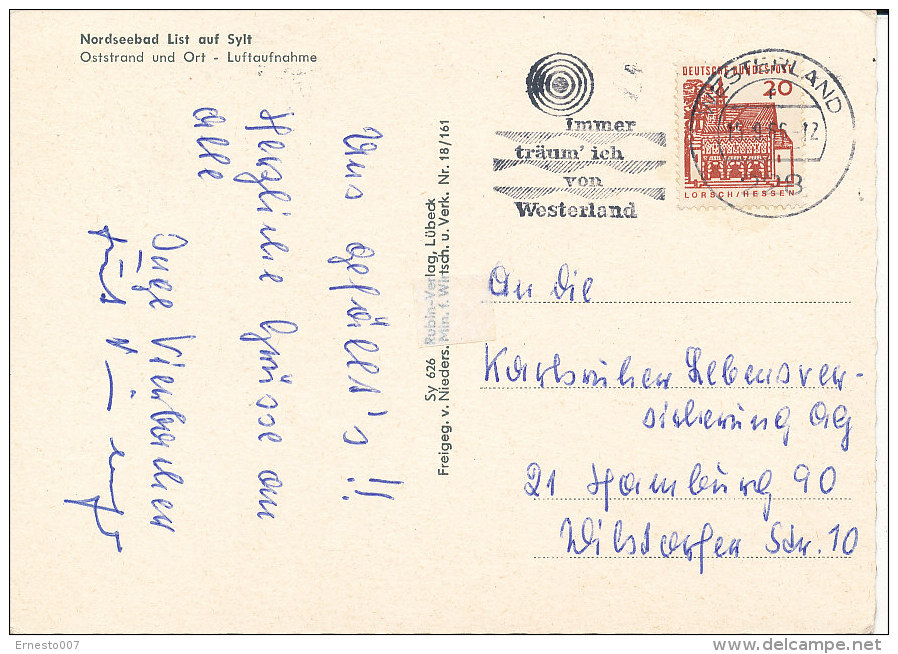 Nordseebad List auf Sylt
Oststrand und Ort - Luftaufnahme
Immer
träum' ich
von
Westerland
DEUTSCHE BUNDESPOST
20
LORSCH/HESSEN
WESTERLAND
Uns gefällt's!!
Herzliche Grüsse an
alle
Inge
Sy 626 Rubin-Verlag, Lübeck
Freigeg. v. Nieders. Min. f. Wirtsch. u. Verk. Nr. 18/161
An die
Karlsruher Lebensver-
sicherung AG
21 Hamburg 90
Wilstorfer Str. 10
Ernesto007
delcampe.net